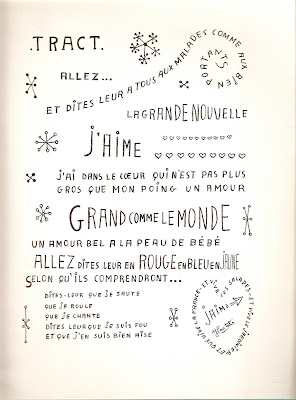 .TRACT.
ALLEZ...
ET DÎTES LEUR A TOUS AUX MALADES COMME AUX BIEN PORTANTS
LA GRANDE NOUVELLE
J'AIME
J'AI DANS LE CŒUR QUI N'EST PAS PLUS
GROS QUE MON POING UN AMOUR
GRAND COMME LE MONDE
UN AMOUR BEL A LA PEAU DE BÉBÉ
ALLEZ DÎTES LEUR EN ROUGE EN BLEU EN JAUNE
SELON QU'ILS COMPRENDRONT...
DÎTES-LEUR QUE JE SAUTE
QUE JE ROULE
QUE JE CHANTE
DÎTES LEUR QUE JE SUIS FOU
ET QUE J'EN SUIS BIEN AISE
ET QUE VIVE LA FRANCE
J'AIME